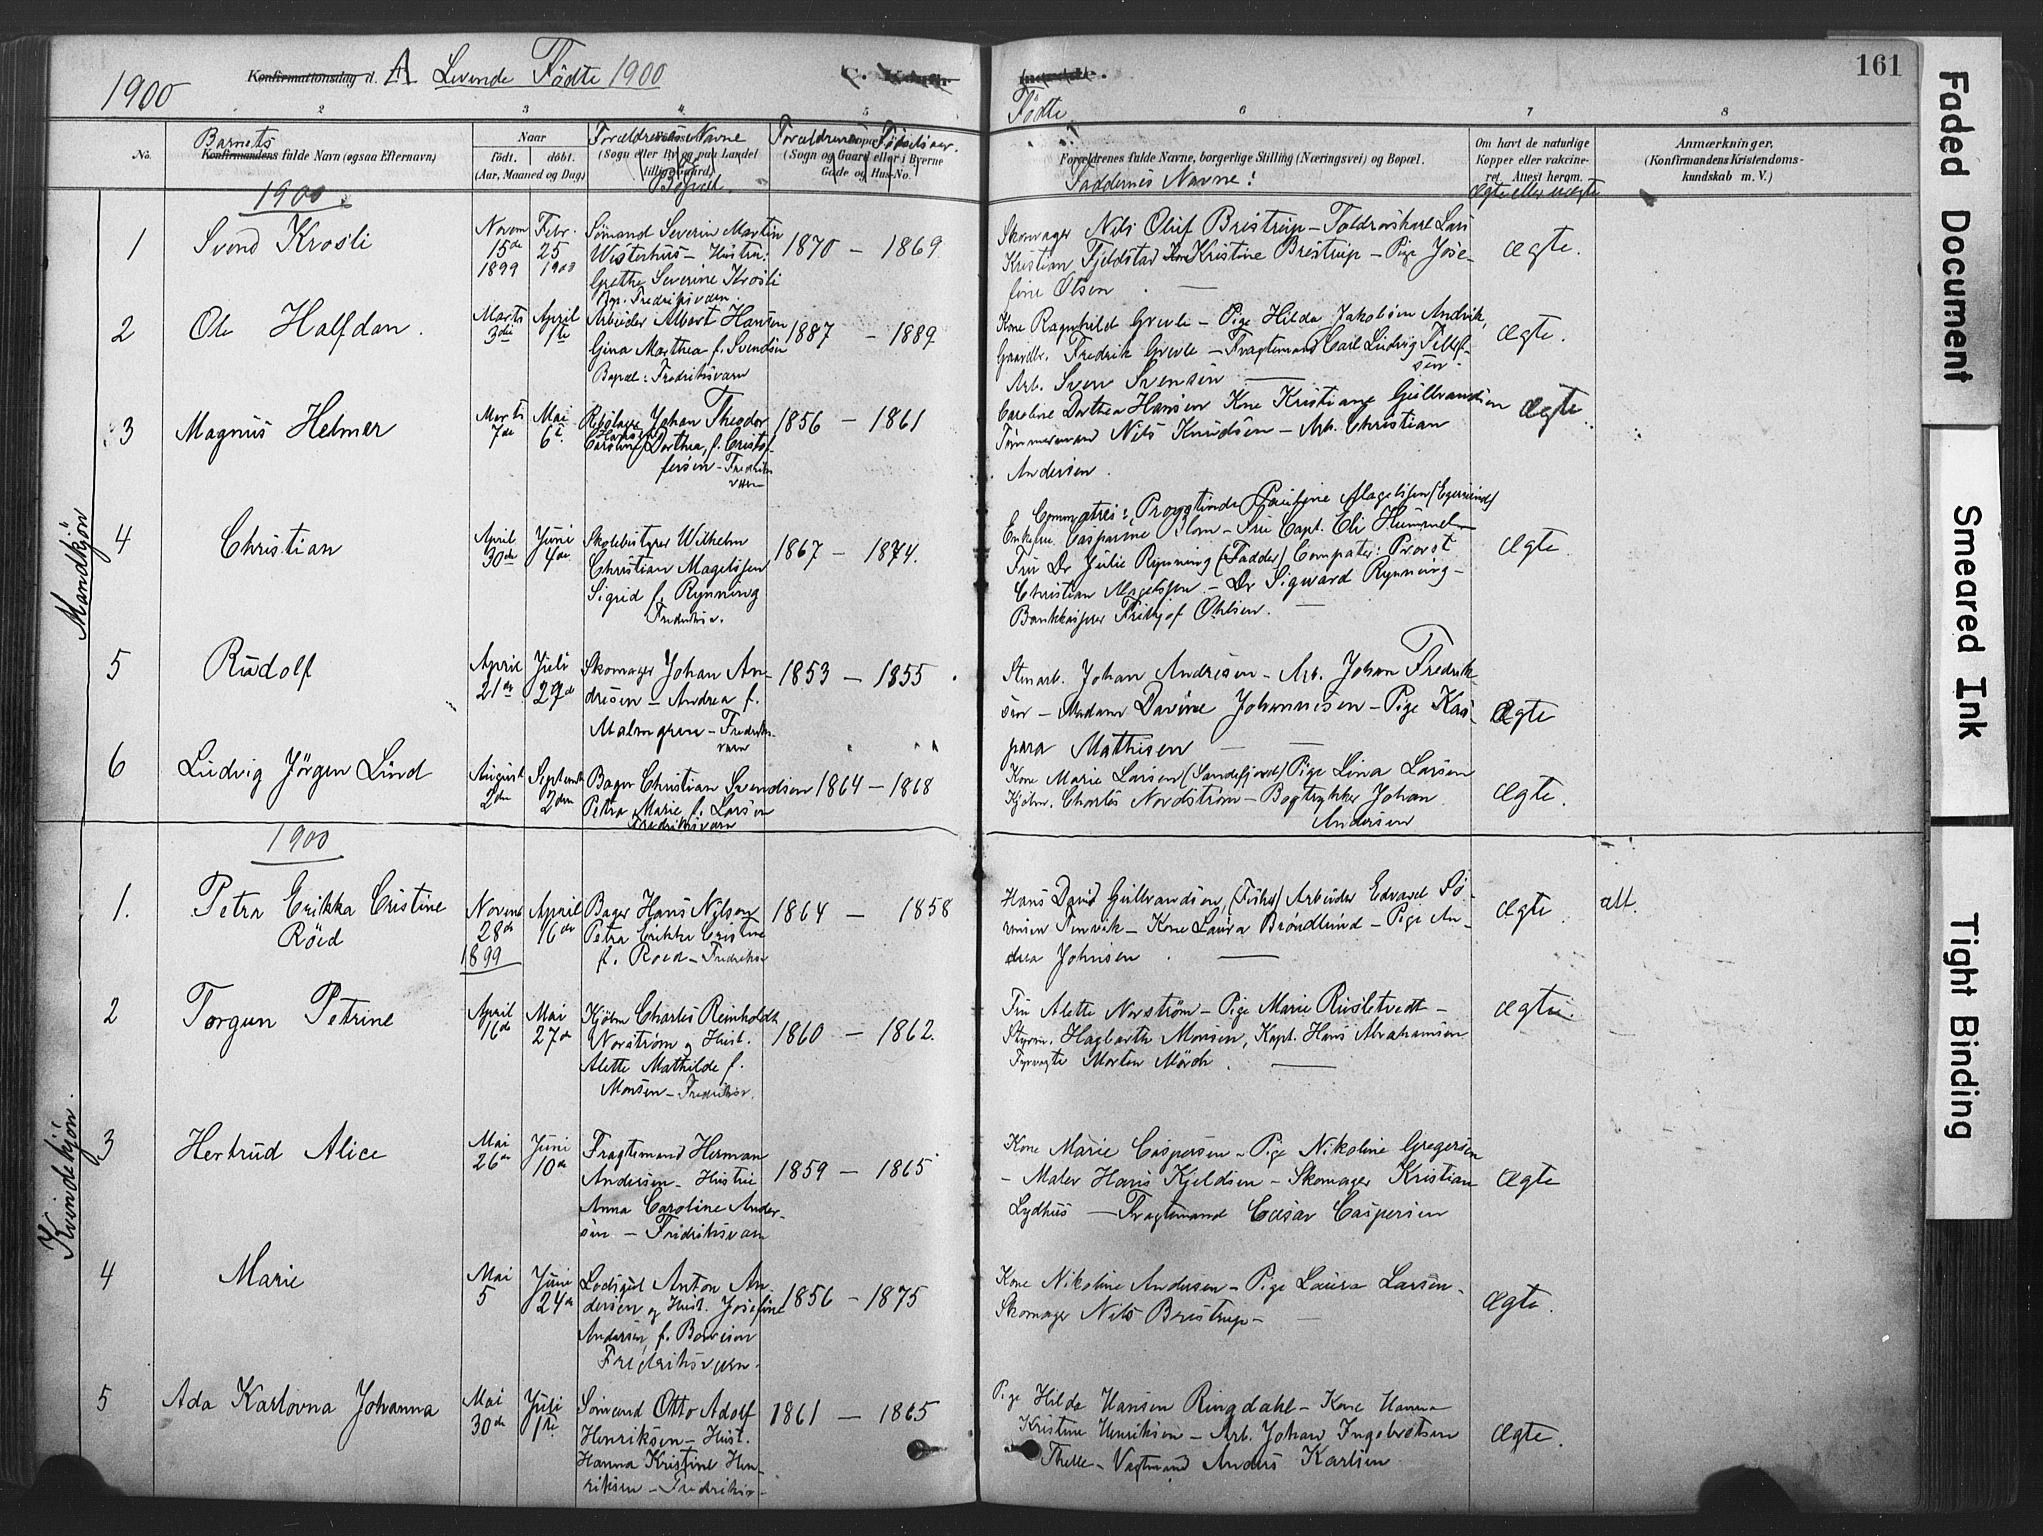 161
1900
Konfirmationsdag d. A Levende Födte 1900
C. Konfir-
Födte
2 3 4 5 6 7 8
No.
Barnets
Konfirmandens fulde Navn (ogsaa Efternavn)
Naar
født. døbt.
(Aar, Maaned og Dag)
Forældrenes Navne
(Sogn eller By og paa Landet
tillige Gaard)
og Bopæl.
Forældrenes Födselsaar.
(Sogn og Gaard eller i Byerne
Gade og Hus-No.
Forældrenes fulde Navne, borgerlige Stilling (Næringsvei) og Bopæl.
Faddernes Navne:
Om havt de naturlige
Kopper eller vakcine-
ret. Attest herom.
Ægte eller uægte
Anmærkninger.
(Konfirmandens Kristendoms-
kundskab m. V.)
Mandkjön
1900
1 Svend Krosli
Novem 15de 1899
Febr. 25 1900
Sömand Severin Martin
Westerhus - Hustru:
Grethe Severine Krosli
Bop. Fredriksværn.
1870 - 1869.
Skomager Nils Oluf Brestrup - Toldroskarl Lars
Kristian Fjeldstad Kone Kristine Brestrup - Pige Jose-
fine Olsen.
Ægte.
2 Ole Halfdan.
Marts 3die
April 1te
Arbeider Albert Hansen
Gina Marthea f. Svendsen
Bopæl: Fredriksværn
1887 - 1889.
Kone Ragnhild Grevle - Pige Hilda Jakobsen Andvik,
Gaardbr. Fredrik Grevle - Fragtemand Carl Ludvig Tellef-
sen.
Arb. Sven Svensen
Ægte.
3 Magnus Helmer
Marts 7de
Mai 6te
Johan Theodor
Hansen
Caroline Dorthea, f. Cristo-
fersen - Fredriks
værn
1856 - 1861
Caroline Dorthea Hansen Kone Kristiane Gulbrandsen
Tömmermand Nils Knudsen - Arb. Christian
Andersen.
Ægte.
4 Christian
April 30de
Juni 4de
Skolebestyrer Wilhelm
Christian Magelssen
Sigrid f. Rynning
Fredriksv.
1867 - 1874.
Commatres: Provstinde Pauline Magelssen (Egersund)
Enkefru Casparine Blom - Fru Capt. Eli Hummel
Fru Dr Julie Rynning (Fadder) Compater: Provst
Christian Magelssen - Dr Sigward Rynning -
Bankkasserer Frithjof Ohlsen.
Ægte.
5 Rudolf
April 21de
Juli 29de
Skomager Johan An-
dresen - Andrea f.
Malmgren - Fredriks-
værn
1853 - 1855
Stenarb. Johan Andresen - Arb. Johan Fredrik-
sen - Madam Davine Johannesen - Pige Kas-
para Mathisen
Ægte
6 Ludvig Jörgen Lind
August 2den
Septemb. 2den
Bager Christian Svendsen
Petra Marie f. Larsen
Fredriksværn
1864 - 1868
Kone Marie Larsen (Sandefjord) Pige Lina Larsen
Kjöbm. Charles Nordström - Bogtrykker Johan
Andersen
Ægte.
Kvindekjön.
1900
1. Petra Erikka Cristine
Röed
Novem 28de 1899
April 16de
Bager Hans Nilsen
Petra Erikke Cristine
f. Roed - Fredriksv
1864 - 1858
Hans David Gulbrandsen, (Fisker) Arbeider Edvard Sö-
rensen Tenvik - Kone Laura Bröndlund - Pige An-
drea Johnsen.
Ægte.
att.
2 Torgun Petrine
April 16de
Mai 27de
Kjöbm Charles Reinholdt
Norström og Hust.
Alette Mathilde f.
Monsen - Fredriksv.
1860 - 1862.
Fru Alette Norström - Pige Marie Risletvedt -
Styrm. Hagbarth Monsen, Kapt. Hans Abrahamsen
Fyrvogte Morten Mörch.
Ægte.
3 Hertrud Alice
Mai 26de
Juni 10de
Fragtemand Herman
Andersen - Hustru
Anna Caroline Ander-
sen - Fredriksværn
1859 - 1865
Kone Marie Caspersen - Pige Nikoline Gregersen
- Maler Hans Kjeldsen - Skomager Kristian
Lydhus - Fragtemand Cæsar Caspersen
Ægte
4 Marie
Mai 5
Juni 24de
Lodsgut Anton An-
dersen og Hust. Josefine
Andersen, f. Borresen
Fredriksværn.
1856 - 1875
Kone Nikoline Andersen - Pige Laura Larsen -
Skomager Nils Brestrup -
Ægte.
5 Ada Karlovna Johanna
Mai 30de
Juli 1te
Sömand Otto Adolf
Henriksen - Hust.
Hanna Kristine Hen-
riksen - Fredriksv -
1861 - 1865
Pige Hilda Hansen Ringdahl - Kone Hanna
Kristine Henriksen - Arb. Johan Ingebretsen
Thelle - Vagtmand Anders Karlsen
Ægte.
Faded Document
Smeared Ink
Tight Binding